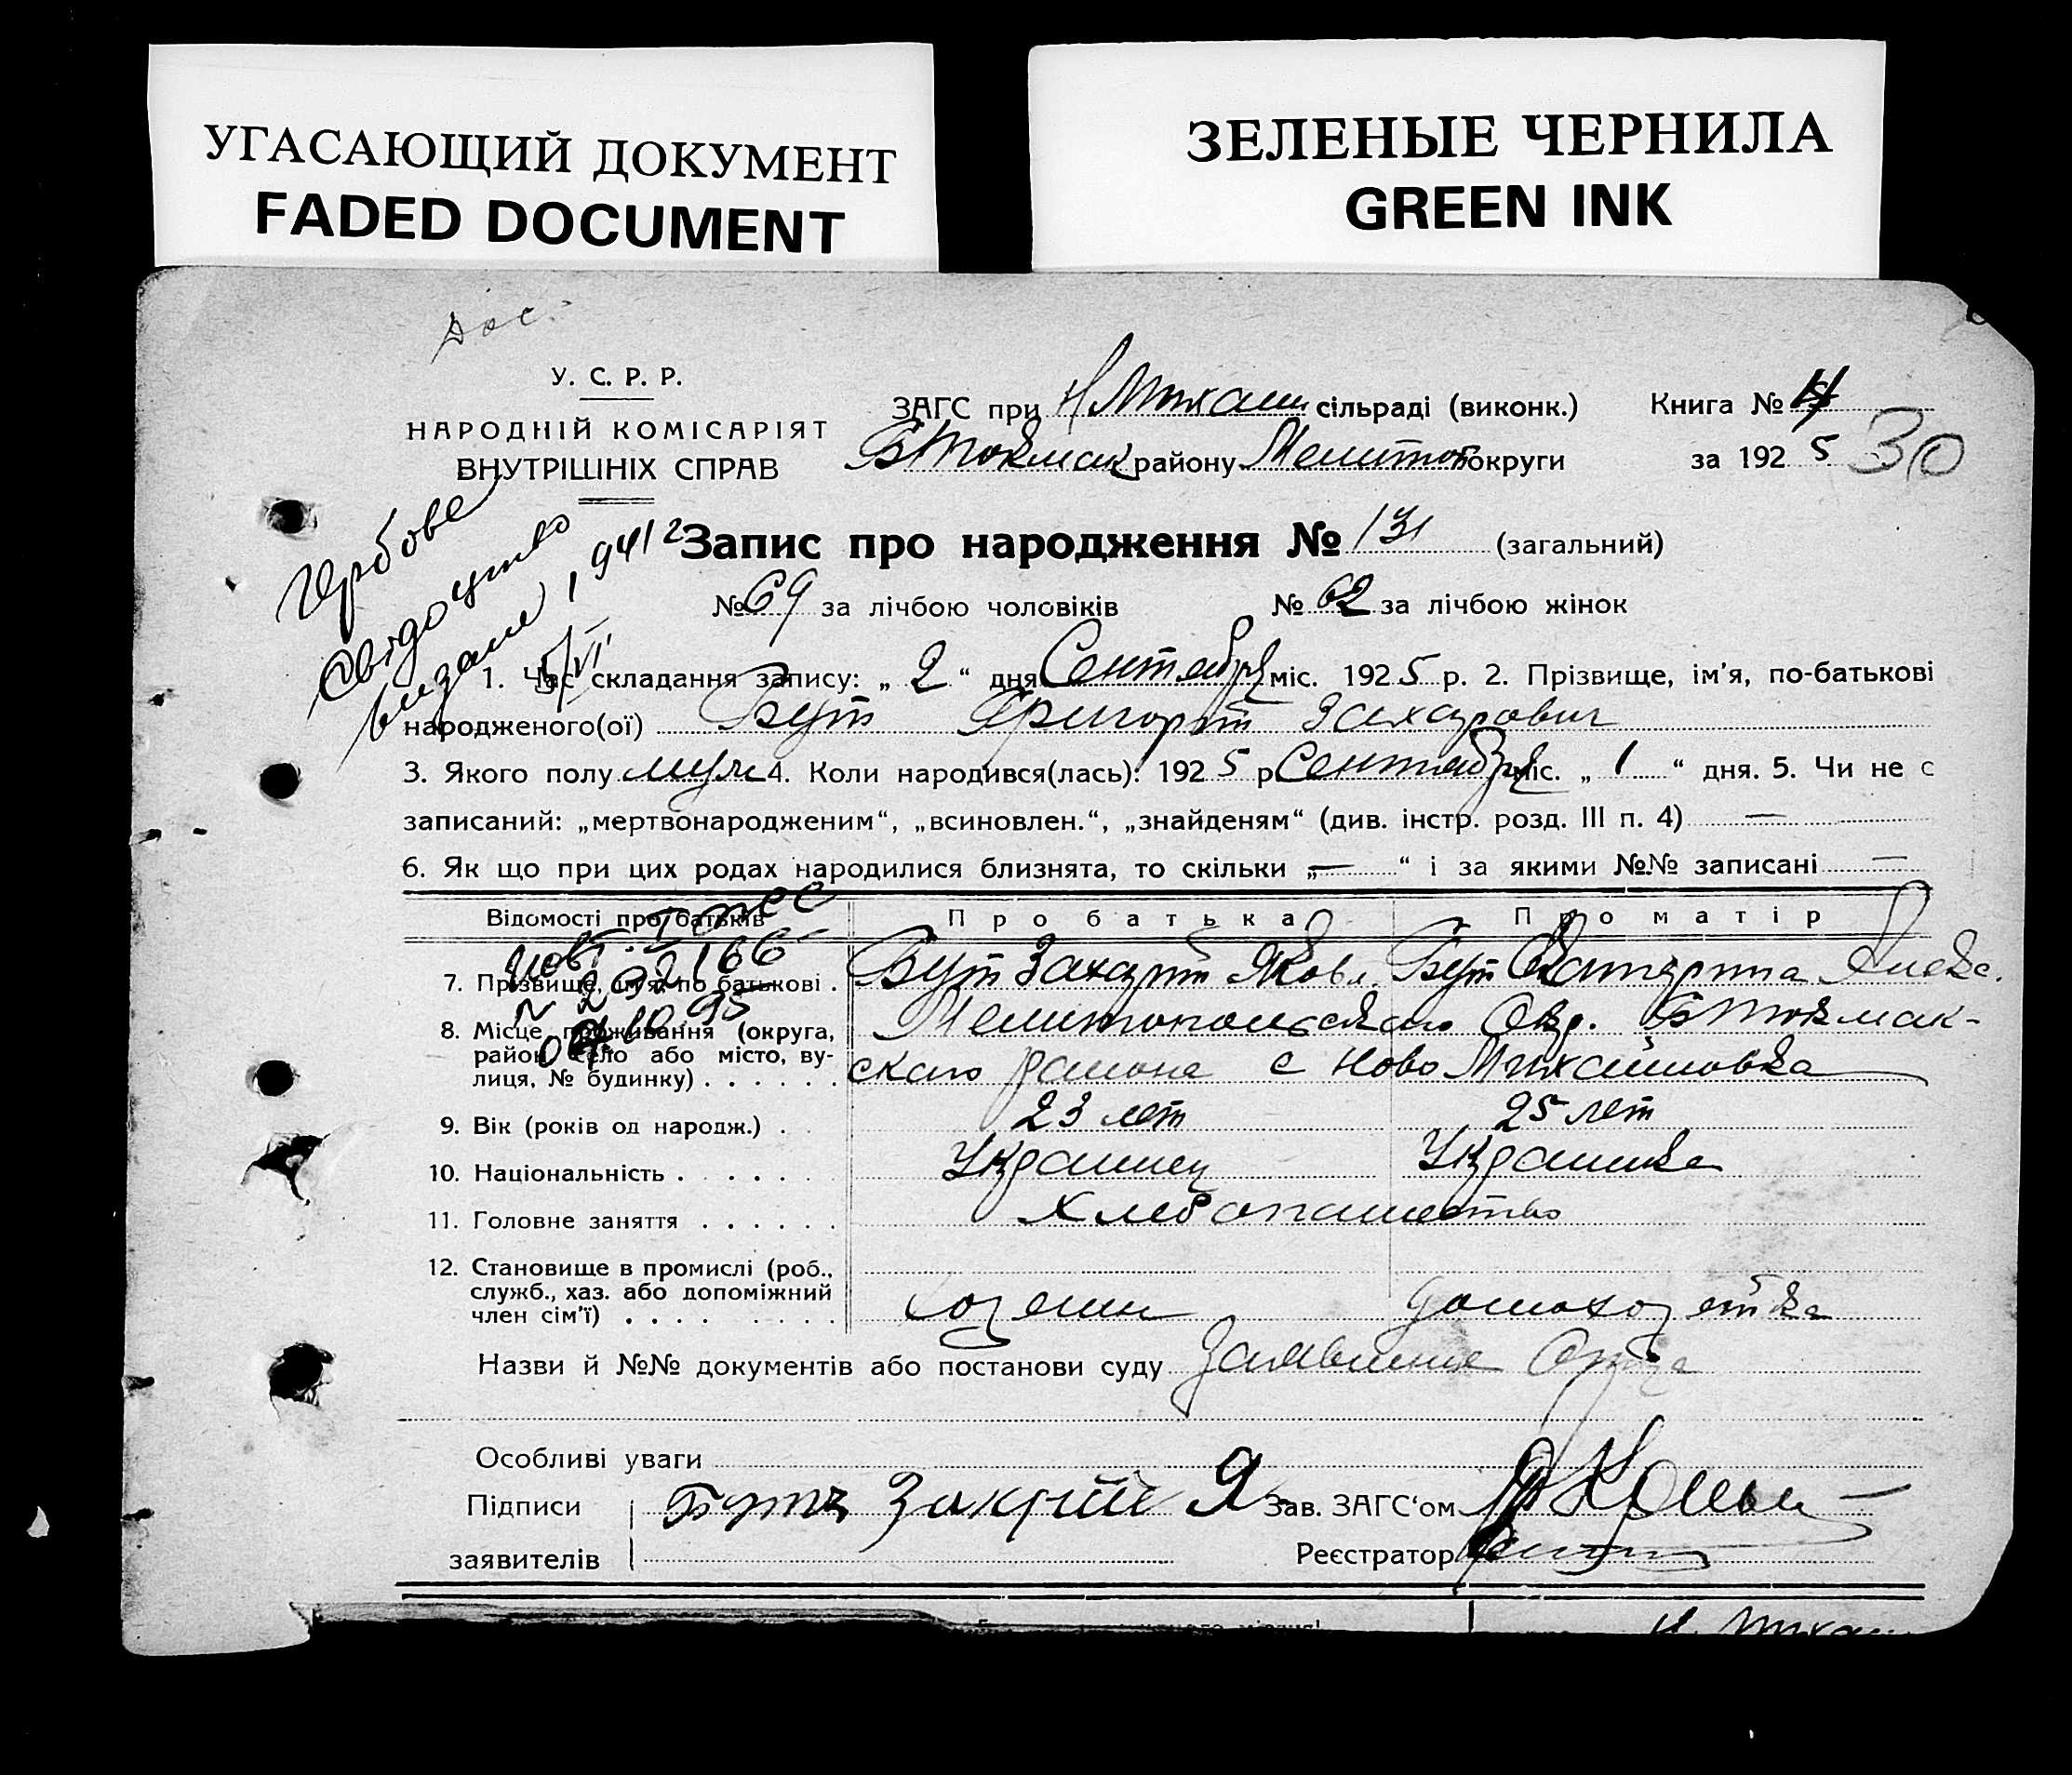 УГАСАЮЩИЙ ДОКУМЕНТ
FADED DOCUMENT
ЗЕЛЕНЫЕ ЧЕРНИЛА
GREEN INK
У. С. Р. Р.
НАРОДНІЙ КОМІСАРІЯТ
ВНУТРІШНІХ СПРАВ
ЗАГС при Н Михайл сільраді (виконк.) Книга №
БТокмак району Мелитоп округи за 1925 30
Гербове
свідоцтво
видане 1941 2
5/VI
Запис про народження № 131 (загальний)
№ 69 за лічбою чоловіків № 62 за лічбою жінок
1. Час складання запису: „ 2 “ дня Сентября міс. 1925 р. 2. Прізвище, ім'я, по-батькові
народженого(ої) Бут Григорий Захарович
3. Якого полу муж 4. Коли народився(лась): 1925 р Сентября міс. „ 1 “ дня. 5. Чи не є
записаний: „мертвонародженим“, „всиновлен.“, „знайденям“ (див. інстр. розд. III п. 4) —
6. Як що при цих родах народилися близнята, то скільки „— “ і за якими №№ записані —
Відомості про батьків Про батька Про матір
7. Прізвище, ім'я, по батькові . Бут Захарий Яковл. Бут Екатерина Алекс.
8. Місце проживання (округа, Мелитопольскаго Окр. БТокмак-
район село або місто, ву-
лиця, № будинку) . . . . . . скаго района с Ново Михайловка
9. Вік (років од народж.) . 23 лет 25 лет
10. Національність . . . . . Украинец Украинка
11. Головне заняття . . . . . . Хлебопашество
12. Становище в промислі (роб.,
служб., хаз. або допоміжний
член сім'ї) . . . . . . . . Хозяин домохозяйка
Назви й №№ документів або постанови суду Заявление Отца
Особливі уваги
Підписи Зав. ЗАГС'ом
заявителів Реєстратор